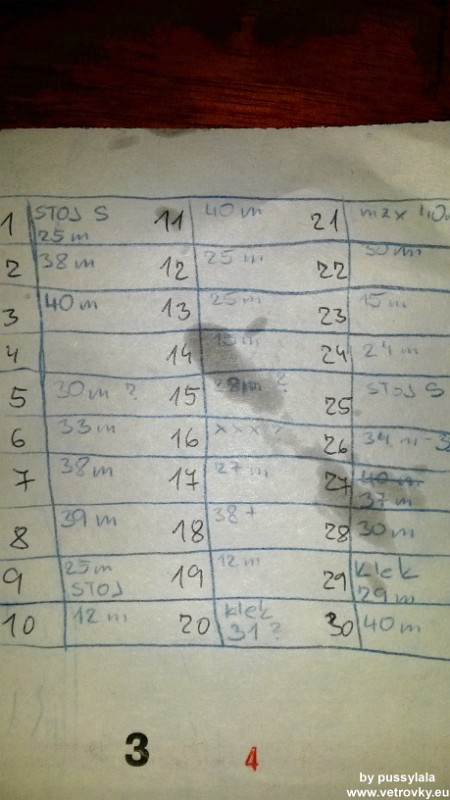 1 STOJ S 11 40 m 21 max 40
25m
2 38 m 12 25 m 22 30m
3 40 m 13 25 m 23 15 m
4 14 15m 24 24 m
5 30m ? 15 28m ? 25 STOJ S
6 33 m 16 xxx 26 34 m - 3
7 38 m 17 27 m 27 40 m
37 m
8 39 m 18 38 + 28 30 m
9 25m 19 12 m 29 Klek
STOJ 29 m
10 12 m 20 Klek 30 40 m
31 ?
3 4
by pussylala
www.vetrovky.eu